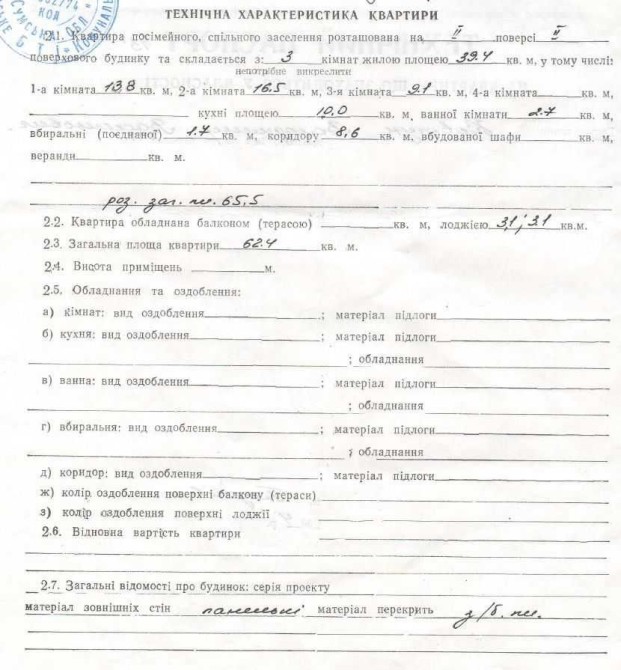 КОД
СУМСЬКА ОБЛ
БТІ
ТЕХНІЧНА ХАРАКТЕРИСТИКА КВАРТИРИ
2.1. Квартира посімейного, спільного заселення розташована на II поверсі II
поверхового будинку та складається з: 3 кімнат жилою площею 39.4 кв. м, у тому числі:
непотрібне викреслити
1-а кімната 13.8 кв. м, 2-а кімната 16.5 кв. м, 3-я кімната 9.1 кв. м, 4-а кімната кв. м,
кухні площею 10,0 кв. м, ванної кімнати 2.7 кв. м,
вбиральні (поєднаної) 1.7 кв. м, коридору 8,6 кв. м, вбудованої шафи кв. м,
веранди кв. м.
роз. заг. пл. 65,5
2.2. Квартира обладнана балконом (терасою) кв. м, лоджією 3,1; 3.1 кв.м.
2.3. Загальна площа квартири 62.4 кв. м.
2.4. Висота приміщень м.
2.5. Обладнання та оздоблення:
а) кімнат: вид оздоблення ; матеріал підлоги
б) кухня: вид оздоблення ; матеріал підлоги
; обладнання
в) ванна: вид оздоблення ; матеріал підлоги
; обладнання
г) вбиральня: вид оздоблення ; матеріал підлоги
; обладнання
д) коридор: вид оздоблення ; матеріал підлоги
ж) колір оздоблення поверхні балкону (тераси)
з) колір оздоблення поверхні лоджії
2.6. Відновна вартість квартири
2.7. Загальні відомості про будинок: серія проекту
матеріал зовнішніх стін панельні матеріал перекрить з/б. пл.